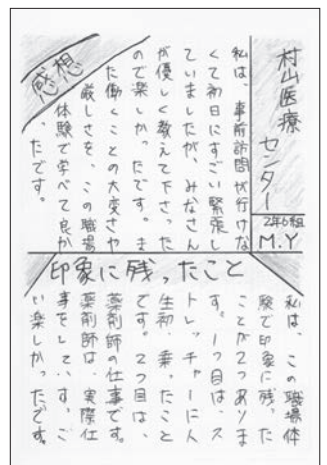 村山医療センター
2年6組
M.Y
感想
私は、事前訪問が行けな
くて初日にすごい緊張し
ていましたが、みなさん
が優しく教えて下さった
ので楽しかったです。ま
た働くことの大変さや
厳しさを、この職場
体験で学べて良か
ったです。
印象に残ったこと
私は、この職場体
験で印象に残った
ことが2つありま
す。1つ目は、ス
トレッチャーに人
生初、乗ったこと
です。2つ目は、
薬剤師の仕事です。
薬剤師は、実際仕
事をしています。ご
い楽しかったです。